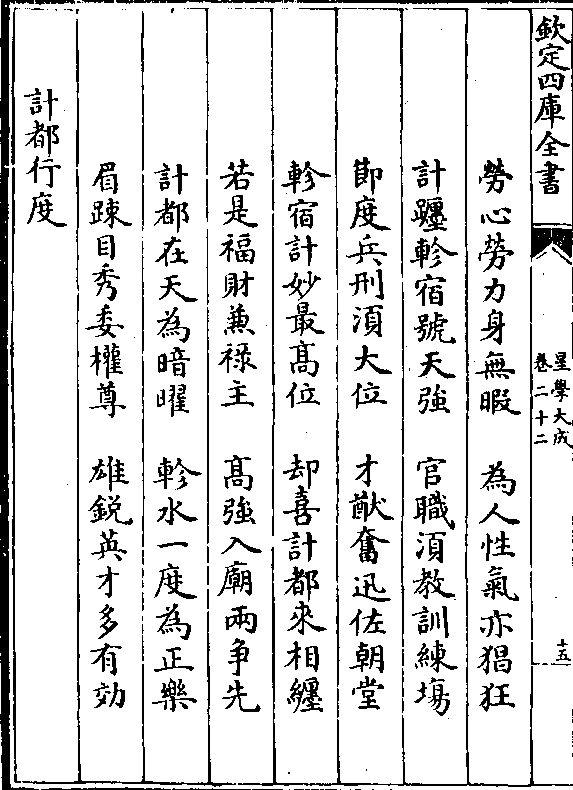 欽定四庫全書
星學大成
卷二十二
十五
勞心勞力身無暇　為人性氣亦猖狂
計躔軫宿號天強　官職須教訓練塲
節度兵刑須大位　才猷奮迅佐朝堂
軫宿計妙最髙位　却喜計都來相纏
若是福財兼祿主　髙強入廟兩争先
計都在天為暗曜　軫水一度為正樂
眉踈目秀委權尊　雄鋭英才多有効
計都行度